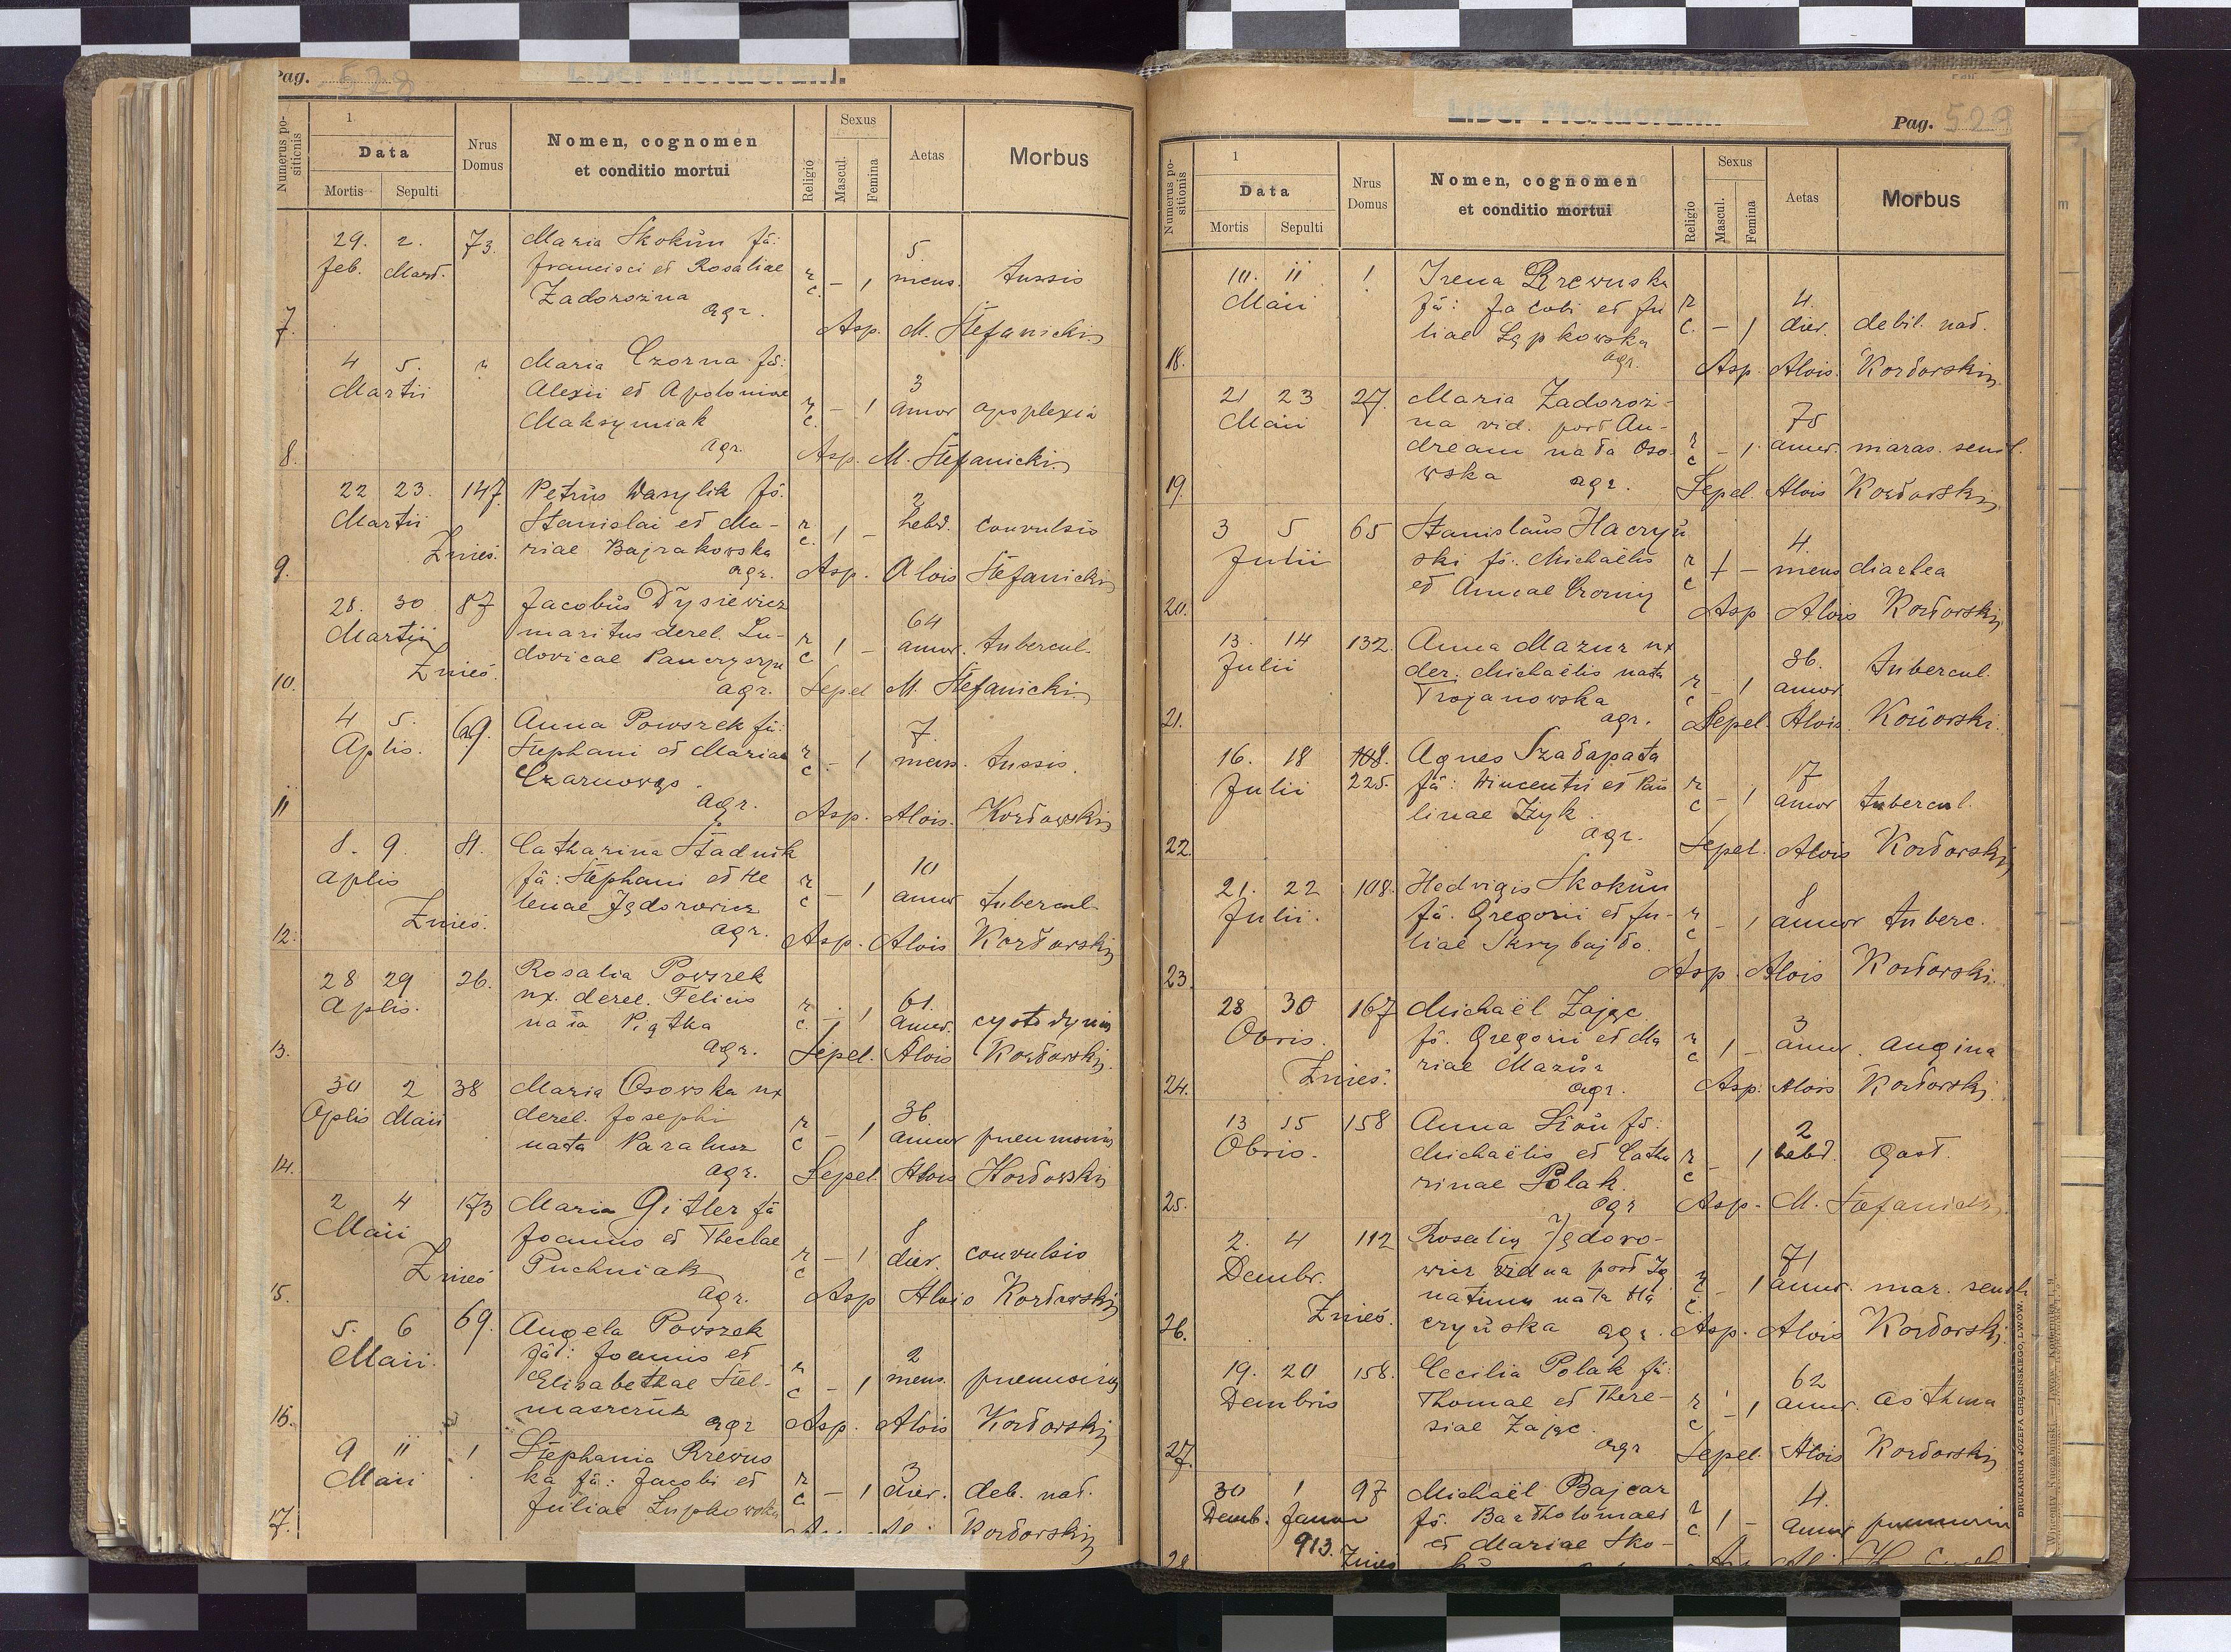 Pag. 528 Liber Mortuorum.
Numerus positionis
1
Data
Mortis Sepulti
Nrus Domus
Nomen, cognomen
et conditio mortui
Religio
Sexus
Mascul. Femina
Aetas
Morbus
29. 2. 73. Maria Skokun fa:
feb. Mart. francisci et Rosaliae 5.
Zadorożna r. c. – 1 mens. tussis
agr.
7. Asp. M. Stefanicki
4 5. Maria Czorna fa:
Martii Alexii et Apoloniae 3
Maksymiak r. c. – 1 annor apoplexia
agr.
8. Asp. M. Stefanicki
22 23. 147 Petrus Wasylik fs.
Martii Stanislai et Ma- 2
Znies. riae Bajrakowska r. c. 1 – hebd. convulsio
agr.
9. Asp. Alois Stefanicki
28. 30 87 Jacobus Dysiewicz
Martii maritus derel. Lu- 64
Znies. dovicae r c 1 – annor. tubercul.
10. agr. Sepel M. Stefanicki
4 5. 69. Anna Powszek fa:
Aplis. Stephani et Mariae 7.
r c – 1 mens. tussis.
agr.
11 Asp. Alois. Kordowski
8. 9. 81. Catharina Stadnik
aplis fa: Stephani et He 10
Znies. lenae Jędorowicz r c – 1 annor tubercul
12. agr. Asp. Alois Kordowski
28 29 26. Rosalia Powszek
Aplis. ux. derel. Felicis 61.
nata Piątka r. c. – 1 annor.
13. agr. Sepel. Alois Kordowski
30 2 38 Maria Osowska ux
Aplis Maii derel. Josephi 36.
nata Paralusz r c – 1 annor pneumonia
14. agr. Sepel. Alois Kordowski
2 4 173 Maria Gitler fa
Maii Joannis et Theclae 8
Znies Puchniak r c – 1 dier. convulsio
15. agr. Asp Alois Kordowski
5. 6 69. Angela Powszek
Maii. fa: Joannis et 2
Elisabethae Stel- r c – 1 mens. pneumonia
maszczuk
16. agr Asp. Alois Kordowski
9 11 1 Stephania Rzewus
Maii ka fa: Jacobi et 3
Juliae Łupkowska r c – 1 dier. deb. nat.
17. Kordowski
Liber Mortuorum. Pag. 529
Numerus positionis
1
Data
Mortis Sepulti
Nrus Domus
Nomen, cognomen
et conditio mortui
Religio
Sexus
Mascul. Femina
Aetas
Morbus
10. 11 1 Irena Rzewuska
Maii fa: Jacobi et Ju 4.
liae r c. – 1 dier. debil. nat.
18. agr. Asp. Alois. Kordowski
21 23 27. Maria Zadoroż-
Maii na vid. post An- 75
dream nata Oso r c – 1 annor. maras. senil.
19. wska agr. Sepel. Alois Kordowski
3 5 65 Stanislaus Haczyń
Julii ski fs. Michaëlis 4.
et Annae r c 1 – mens diarhea
20. Asp Alois Kordowski
13. 14 132. Anna Mazur ux
Julii der. Michaëlis nata 36. tubercul.
Trojanowska r c – 1 annor
21. agr. Sepel. Alois. Kordowski.
16. 18 108. Agnes Szadapata
Julii 225. fa: Wincentii et Pau 17
linae Zyk. r c – 1 annor tubercul.
22. agr. Sepel. Alois Kordowski
21. 22 108. Hedvigis Skokun
Julii. fa. Gregorii et Ju- 8
liae Skrybajdo. r c – 1 annor tuberc.
23. Asp. Alois Kordowski.
28 30 167 Michaël Zając
Obris. fs. Gregorii et Ma 3
Znies. riae Mazur r c 1 – annor. angina
24. agr. Asp. Alois Kordowski
13 15 158 Anna fa:
Obris. Michaëlis et Catha 2
rinae Polak. r c – 1 hebd. Gast.
25. agr Asp. M. Stefanicki
2. 4 112 Rosalia Jędoro-
Dembr. wicz vidua post Ig 71
natium nata Ha r c. – 1 annor. mar. senil
26. Znies. czyńska agr. Asp. Alois Kordowski
19. 20 158. Cecilia Polak fa:
Dembris Thomae et There- 62
siae Zając r c – 1 annor. asthma
27. agr Sepel. Alois Kordowski
30 1 97 Michaël Bajcar
Demb. Januar fs. Bartholomaei 4.
913. Znies et Mariae Sko- r c. 1 – annor
28
DRUKARNIA JÓZEFA CHĘCIŃSKIEGO, LWÓW.